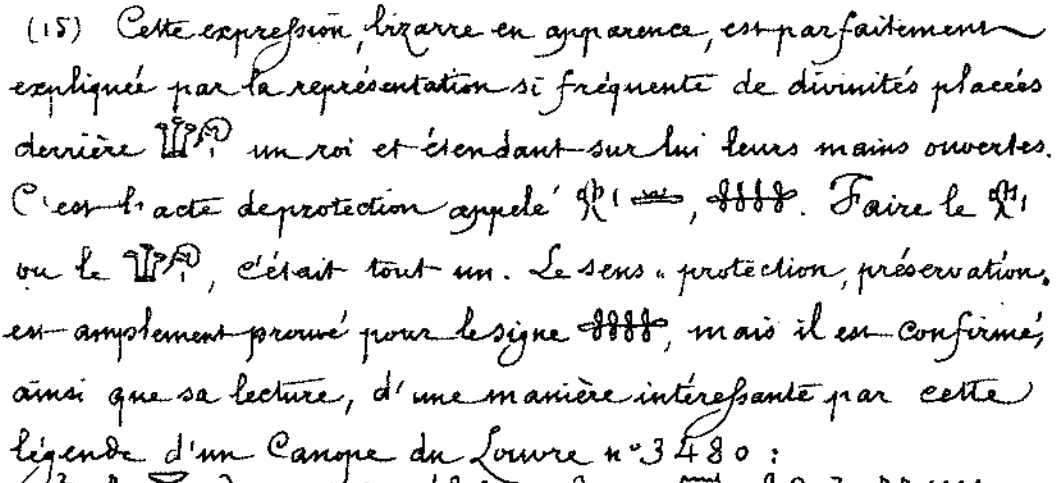 (15) Cette expression, bizarre en apparence, est parfaitement
expliquée par la représentation si fréquente de divinités placées
derrière un roi et étendant sur lui leurs mains ouvertes.
C'est l'acte de protection appelé , . Faire le
ou le , c'était tout un. Le sens " protection, préservation,
est amplement prouvé pour le signe , mais il est confirmé,
ainsi que sa lecture, d'une manière intéressante par cette
légende d'un Canope du Louvre n° 3480 :